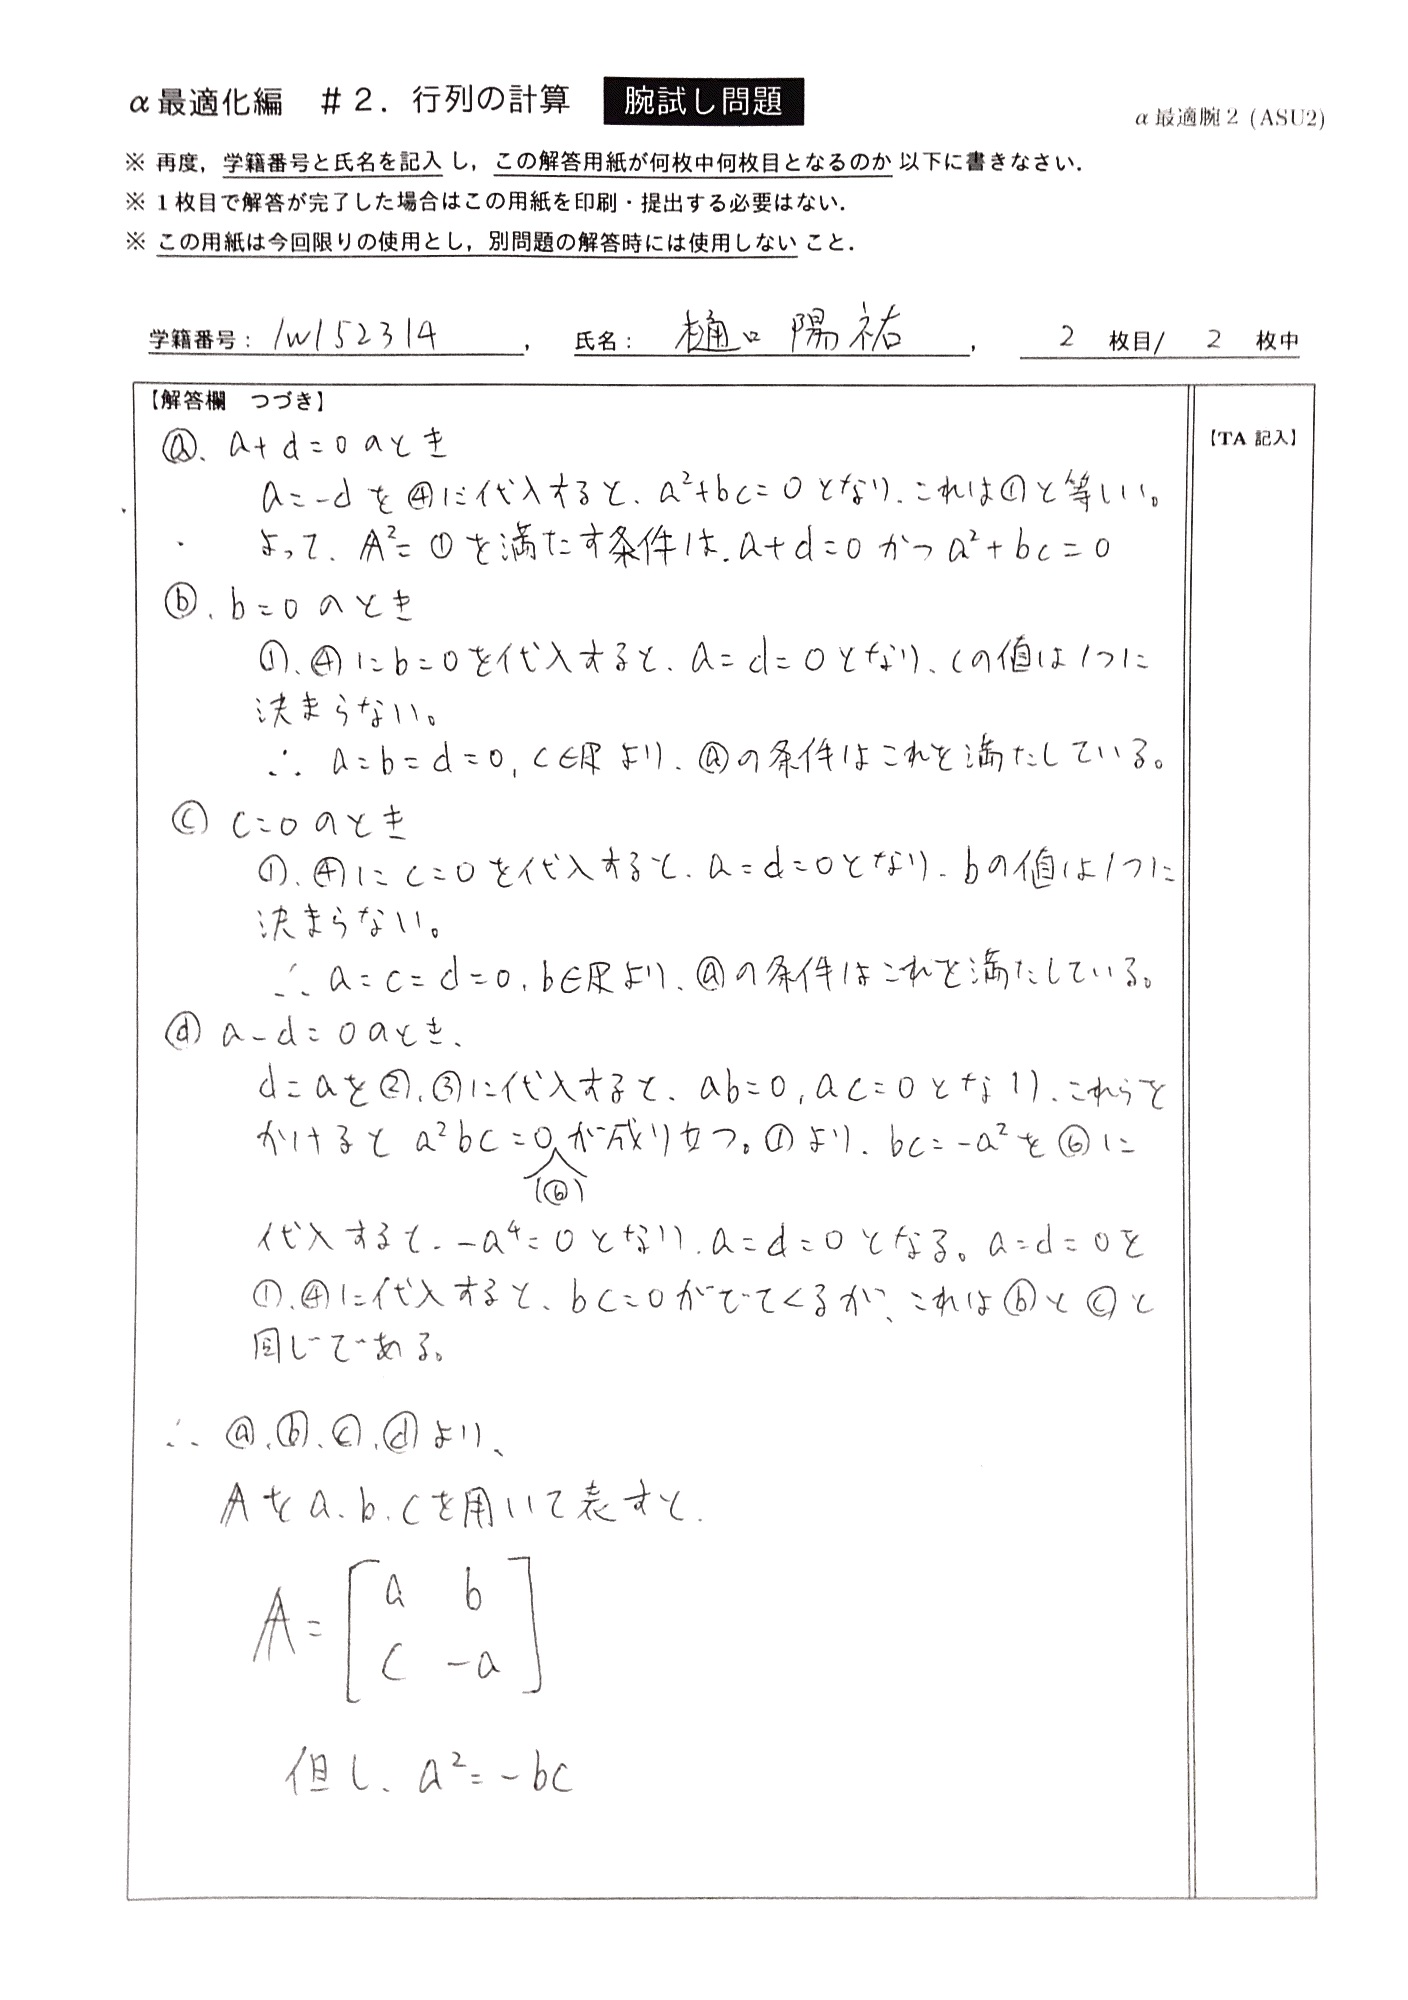 α最適化編　＃2．行列の計算　腕試し問題
α最適腕2 (ASU2)
※ 再度，学籍番号と氏名を記入し，この解答用紙が何枚中何枚目となるのか以下に書きなさい．
※ 1枚目で解答が完了した場合はこの用紙を印刷・提出する必要はない．
※ この用紙は今回限りの使用とし，別問題の解答時には使用しないこと．
学籍番号：1w152314，　氏名：樋口 陽祐，　2 枚目/ 2 枚中
【解答欄　つづき】
【TA 記入】
ⓐ、a+d=0のとき
a=-dを④に代入すると、a²+bc=0となり、これは①と等しい。
よって、A²=Oを満たす条件は、a+d=0かつa²+bc=0
ⓑ、b=0のとき
①、④にb=0を代入すると、a=d=0となり、cの値は1つに
決まらない。
∴ a=b=d=0, c∈Rより、ⓐの条件はこれを満たしている。
ⓒ c=0のとき
①、④にc=0を代入すると、a=d=0となり、bの値は1つに
決まらない。
∴ a=c=d=0, b∈Rより、ⓐの条件はこれを満たしている。
ⓓ a-d=0のとき、
d=aを②、③に代入すると、ab=0, ac=0となり、これらを
かけるとa²bc=0が成り立つ。①より、bc=-a²を⑥に
(⑥)
代入すると、-a⁴=0となり、a=d=0となる。a=d=0を
①、④に代入すると、bc=0がでてくるが、これはⓑとⓒと
同じである。
∴ ⓐ、ⓑ、ⓒ、ⓓより、
Aをa、b、cを用いて表すと、
A = [ a b
c -a ]
但し、a²=-bc